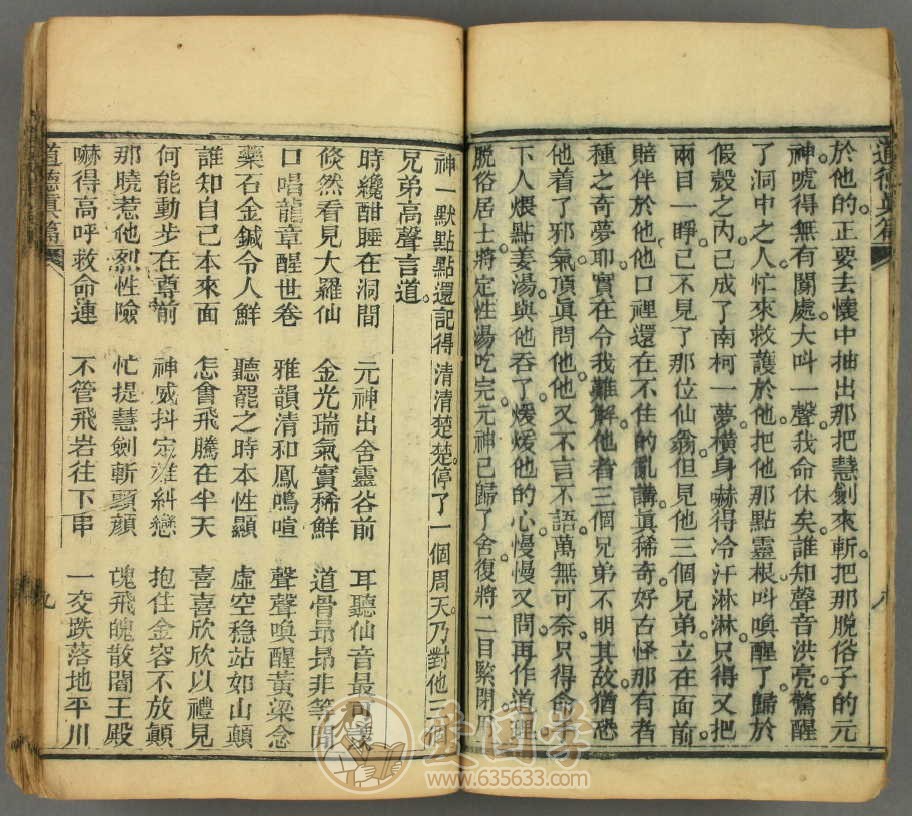 道德真篇
於他的正要去懷中抽出那把慧劍來斬把那脫俗子的元
神唬得無有闗處大叫一聲我命休矣誰知聲音洪亮驚醒
了洞中之人忙來救護於他把他那點靈根叫喚醒了歸於
假殼之內已成了南柯一夢橫身嚇得冷汗淋淋只得又把
兩目一睜已不見了那位仙翁但見他三個兄弟立在面前
賠伴於他他口裡還在不住的亂講真稀奇好古怪那有者
種之奇夢耶實在令我難解他者三個兄弟不明其故猶恐
他着了邪氣頂真問他他又不言不語萬無可奈只得命手
下人煨點姜湯與他吞了煖煖他的心慢慢又問再作道理
脫俗居士將定性湯吃完元神已歸了舍復將二目緊閉用
八
神一默點點還記得清清楚楚停了一個周天乃對他三個
兄弟高聲言道
時纔酣睡在洞間 元神出舍靈谷前 耳聽仙音最可羨
倐然看見大羅仙 金光瑞氣實稀鮮 道骨昻昻非等閒
口唱龍章醒世卷 雅韻清和鳳鳴喧 聲聲喚醒黃梁念
藥石金鍼令人鮮 聽罷之時本性顯 虛空稳站如山巔
誰知自己本來面 怎會飛騰在半天 喜喜欣欣以禮見
何能動步在尊前 神威抖定誰糾戀 抱住金容不放顛
那曉惹他烈性險 忙提慧劍斬頭顔 魂飛魄散閻王殿
嚇得高呼救命連 不管飛岩往下串 一交跌落地平川
道德真篇
九
雲國學
www.635633.com